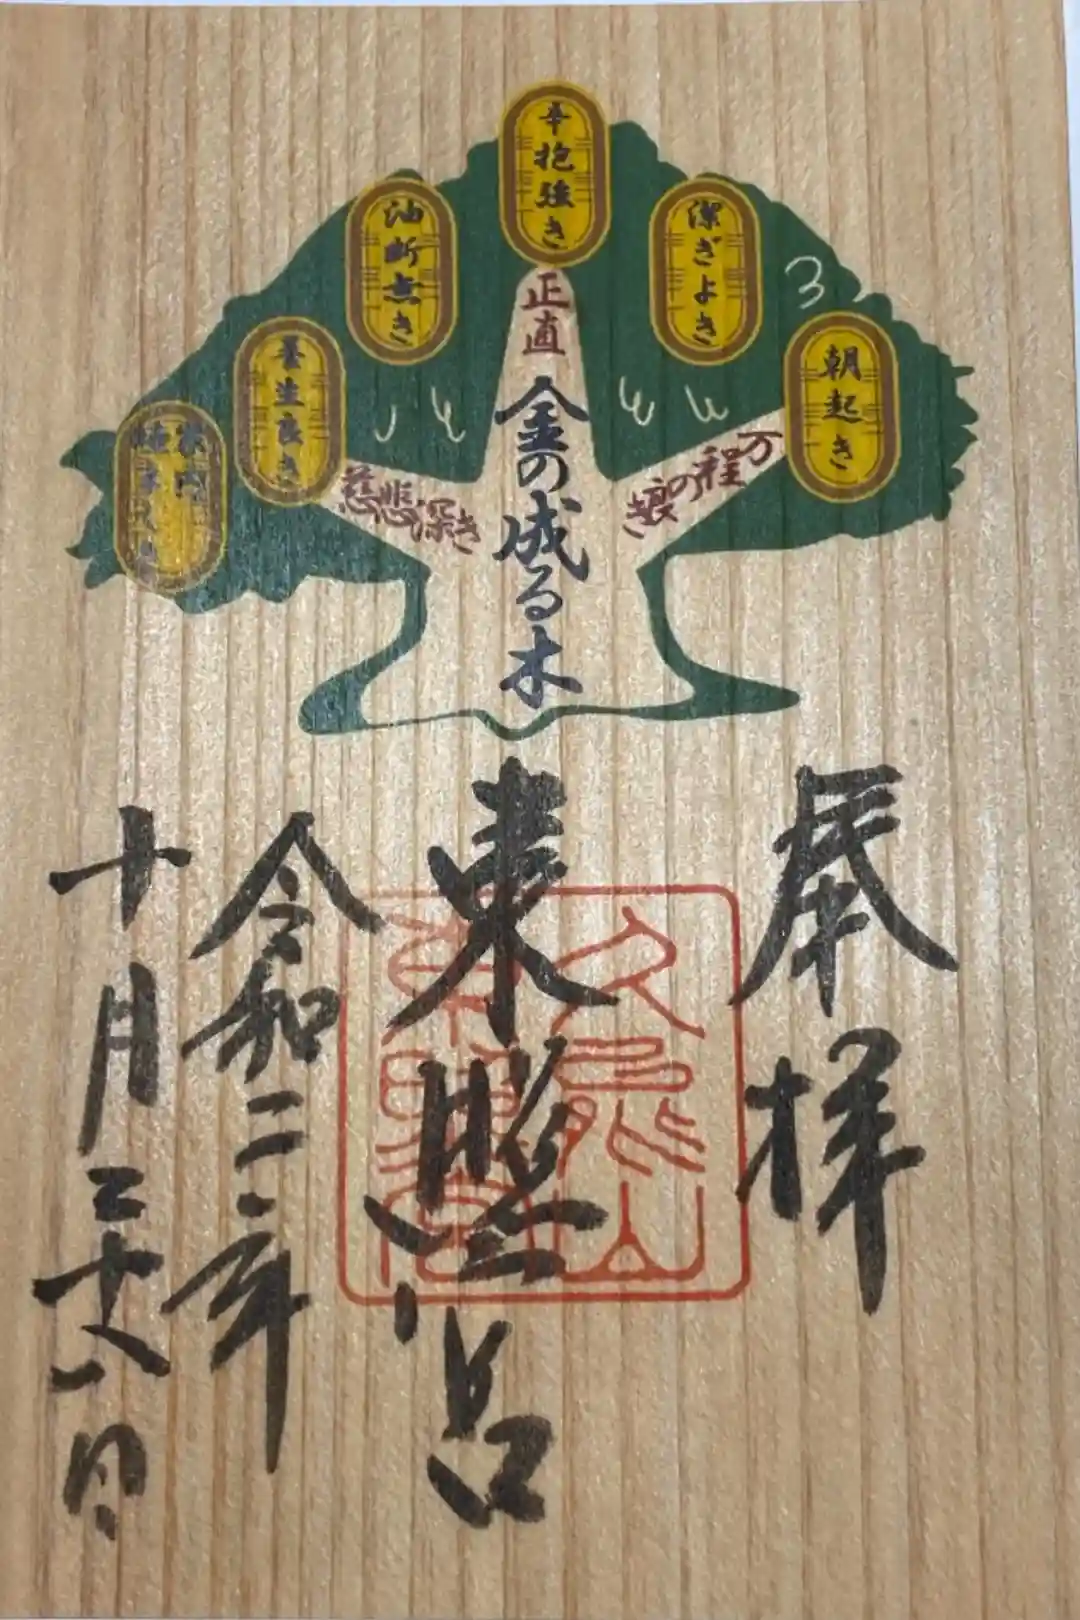 辛抱強き
潔ぎよき
油断無き
朝起き
養生良き
正直
万程の
慈悲深き
金の成る木
奉拝
東照宮
久能山
東照宮
令和二年
十月二十八日